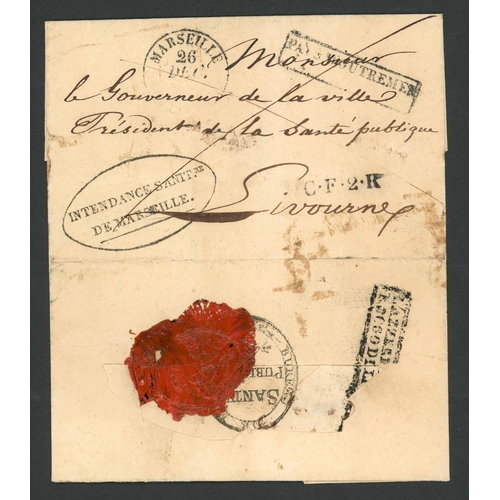 MARSEILLE
26
DEC.
PAYS D'OUTREMER
Monsieur
le Gouverneur de la ville
Président de la Santé publique
INTENDANCE SANIT.RE
DE MARSEILLE.
C.F.2.R
Livourne
SANT
PUBB